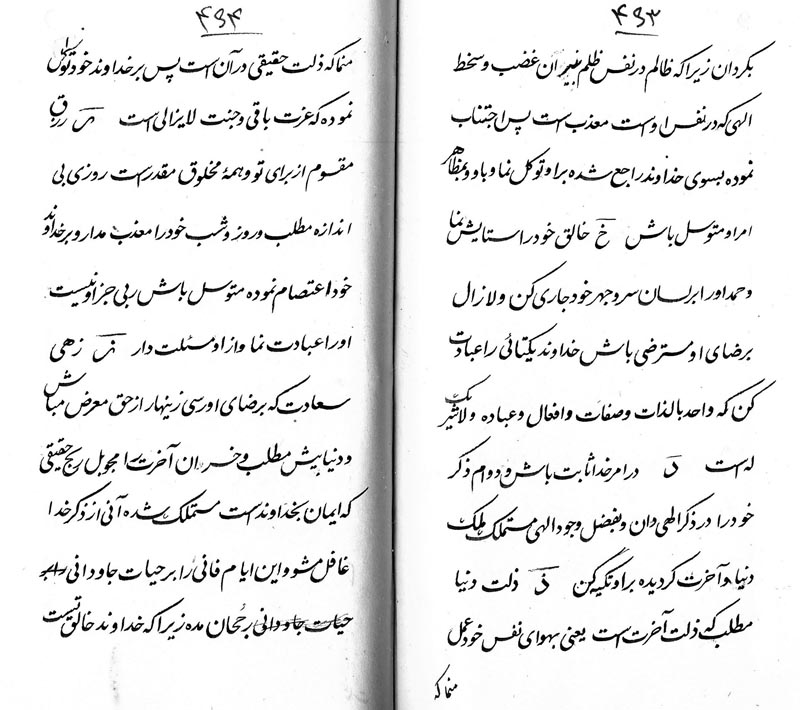 ۴۹۳
بگردان زیرا که ظالم در نفس ظلم بنیران غضب و سخط
الهی که در نفس اوست معذب است پس اجتناب
نموده بسوی خداوند راجع شده بر او توکل نما و باو و بمظاهر
امر او متوسل باش خ خالق خود را ستایش نما
و حمد او را بر لسان سر و جهر خود جاری کن و لازال
برضای او مسترضی باش خداوند یکتائی را عبادت
کن که واحد بالذات و صفات و افعال و عباده و لاشریک
له است د در امر خدا ثابت باش و دوام ذکر
خود را در ذکر الهی دان و بفضل وجود الهی متملک ملک
دنیا و آخرت گردیده بر او تکیه کن ذ ذلت دنیا
مطلب که ذلت آخرت است یعنی بهوای نفس خود عمل
منما که
۴۹۴
منما که ذلت حقیقی در آن است پس بر خداوند خود توکل
نموده که عزت باقی و جنت لایزالی است ر رزق
مقسوم از برای تو و همهٔ مخلوق مقدر است روزی بی
اندازه مطلب و روز و شب خود را معذب مدار و بر خداوند
خود اعتصام نموده متوسل باش ربی جز او نیست
او را عبادت نما و از او مسئلت دار ز زهی
سعادت که برضای او رسی زینهار از حق معرض مباش
و دنیا بیش مطلب و خسران آخرت را مجو بل ربح حقیقی
که ایمان بخداوند است متملک شده آنی از ذکر خدا
غافل مشو و این ایام فانی را بر حیات جاودانی
حیات جاودانی رجحان مده زیرا که خداوند خالق تست